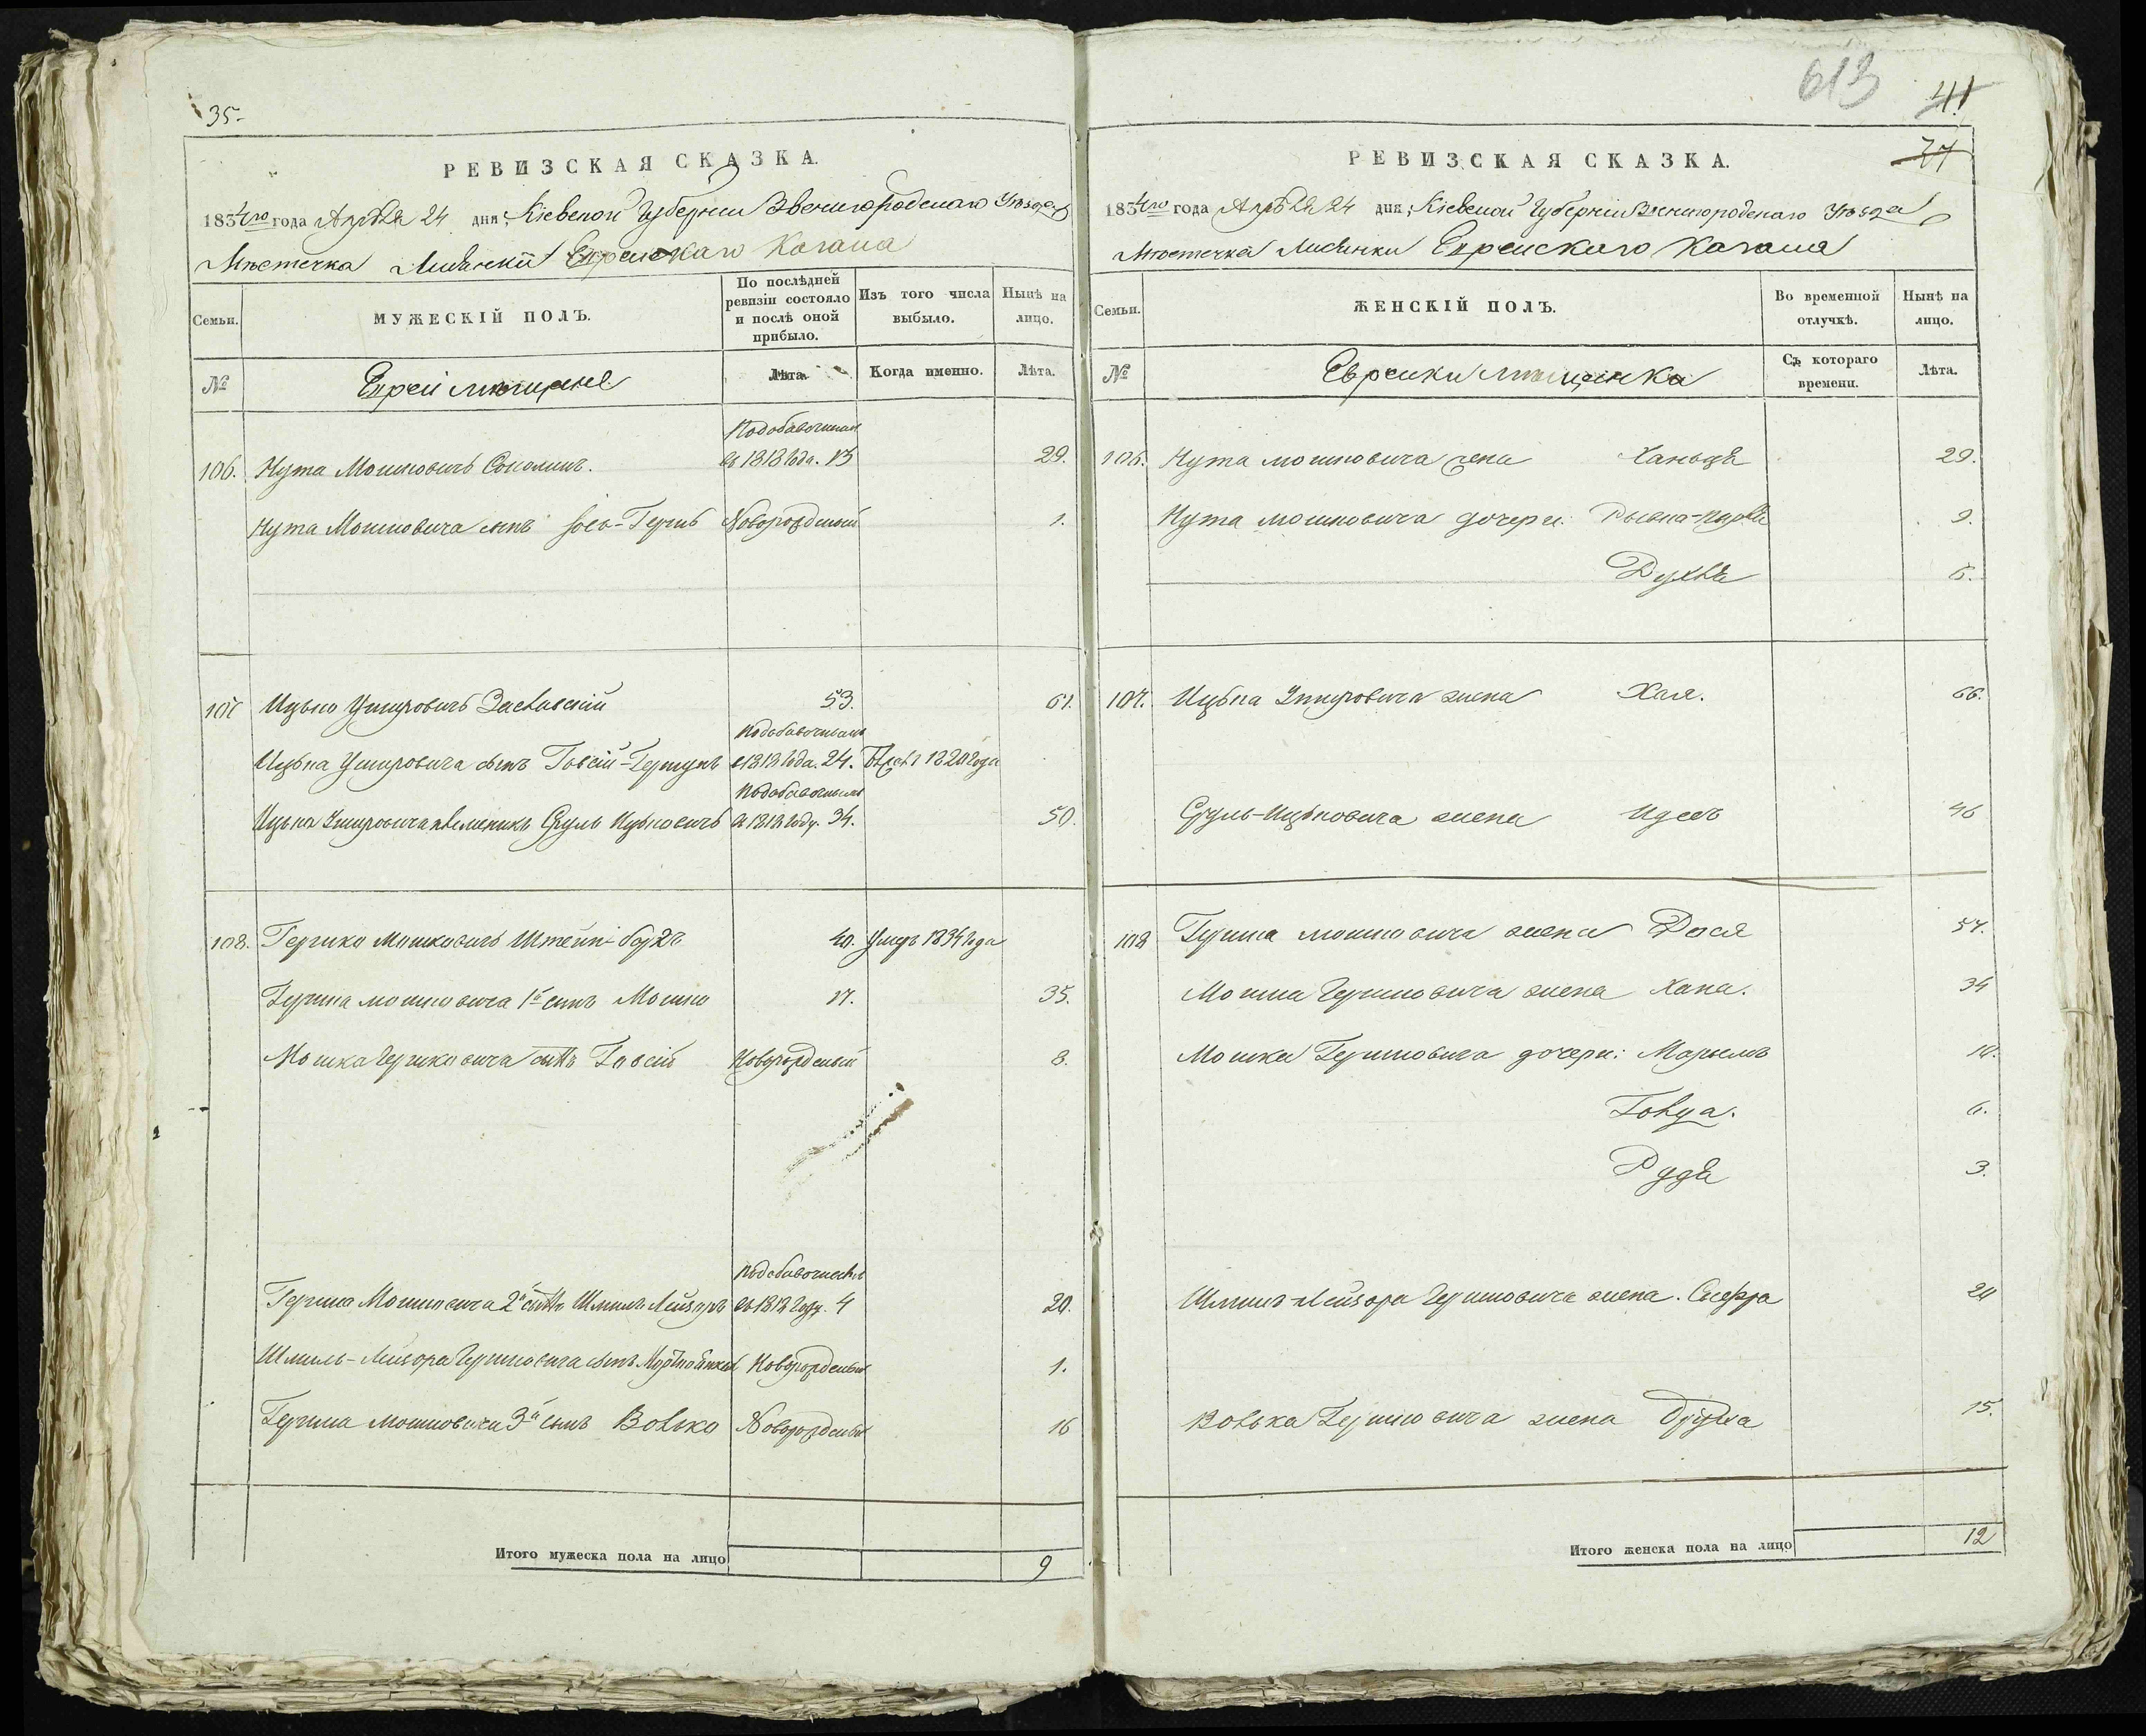 35.
РЕВИЗСКАЯ СКАЗКА.
1834го года Апрѣля 24 дня; Кіевской Губерніи Звенигородскаго Уѣзда
Мѣстечка Лисянки Еврейскаго Кагала
Семьи.
МУЖЕСКІЙ ПОЛЪ.
По послѣдней ревизіи состояло и послѣ оной прибыло.
Изъ того числа выбыло.
Нынѣ на лицо.
№
Евреи мѣщане
Лѣта.
Когда именно.
Лѣта.
106. Нута Мошковичъ
1818 года. 13 29.
Нута Мошковича сынъ Новорожденый 1.
107 Ицько Заславскій 53. 61.
Ицька сынъ 1818 года. 24. 1820 года
Ицька племеникъ Сруль Ицьковичъ 1818 году. 34. 50.
108. Гершко Мошковичъ Штейн- 40. Умеръ 1834 года
Гершка Мошковича 1й сынъ Мошко 17. 35.
Мошка Гершковича сынъ Говсій Новорожденый 8.
Гершка Мошковича 2й сынъ Шмиль Лейзоръ 1818 году. 4 20.
Шмиль-Лейзора Гершковича сынъ Новорожденый 1.
Гершка Мошковича 3й сынъ Волько Новорожденый 16
Итого мужеска пола на лицо 9
613
41
27
РЕВИЗСКАЯ СКАЗКА.
1834го года Апрѣля 24 дня; Кіевской Губерніи Звенигородскаго Уѣзда
Мѣстечка Лисянки Еврейскаго Кагала
Семьи.
ЖЕНСКІЙ ПОЛЪ.
Во временной отлучкѣ.
Нынѣ на лицо.
№
Еврейки мѣщанка
Съ котораго времени.
Лѣта.
106. Нута Мошковича жена Ханьця 29.
Нута Мошковича дочери: 9.
Рухля 6.
107. Ицька жена Хая. 66.
Сруль-Ицьковича жена Идесъ 46
108 Гершка Мошковича жена Дося 57.
Мошка Гершковича жена Хана. 34
Мошка Гершковича дочери: Марьямъ 10.
6.
Рудя 3.
Шмиль-Лейзора Гершковича жена. 20
Волька Гершковича жена 15.
Итого женска пола на лицо 12